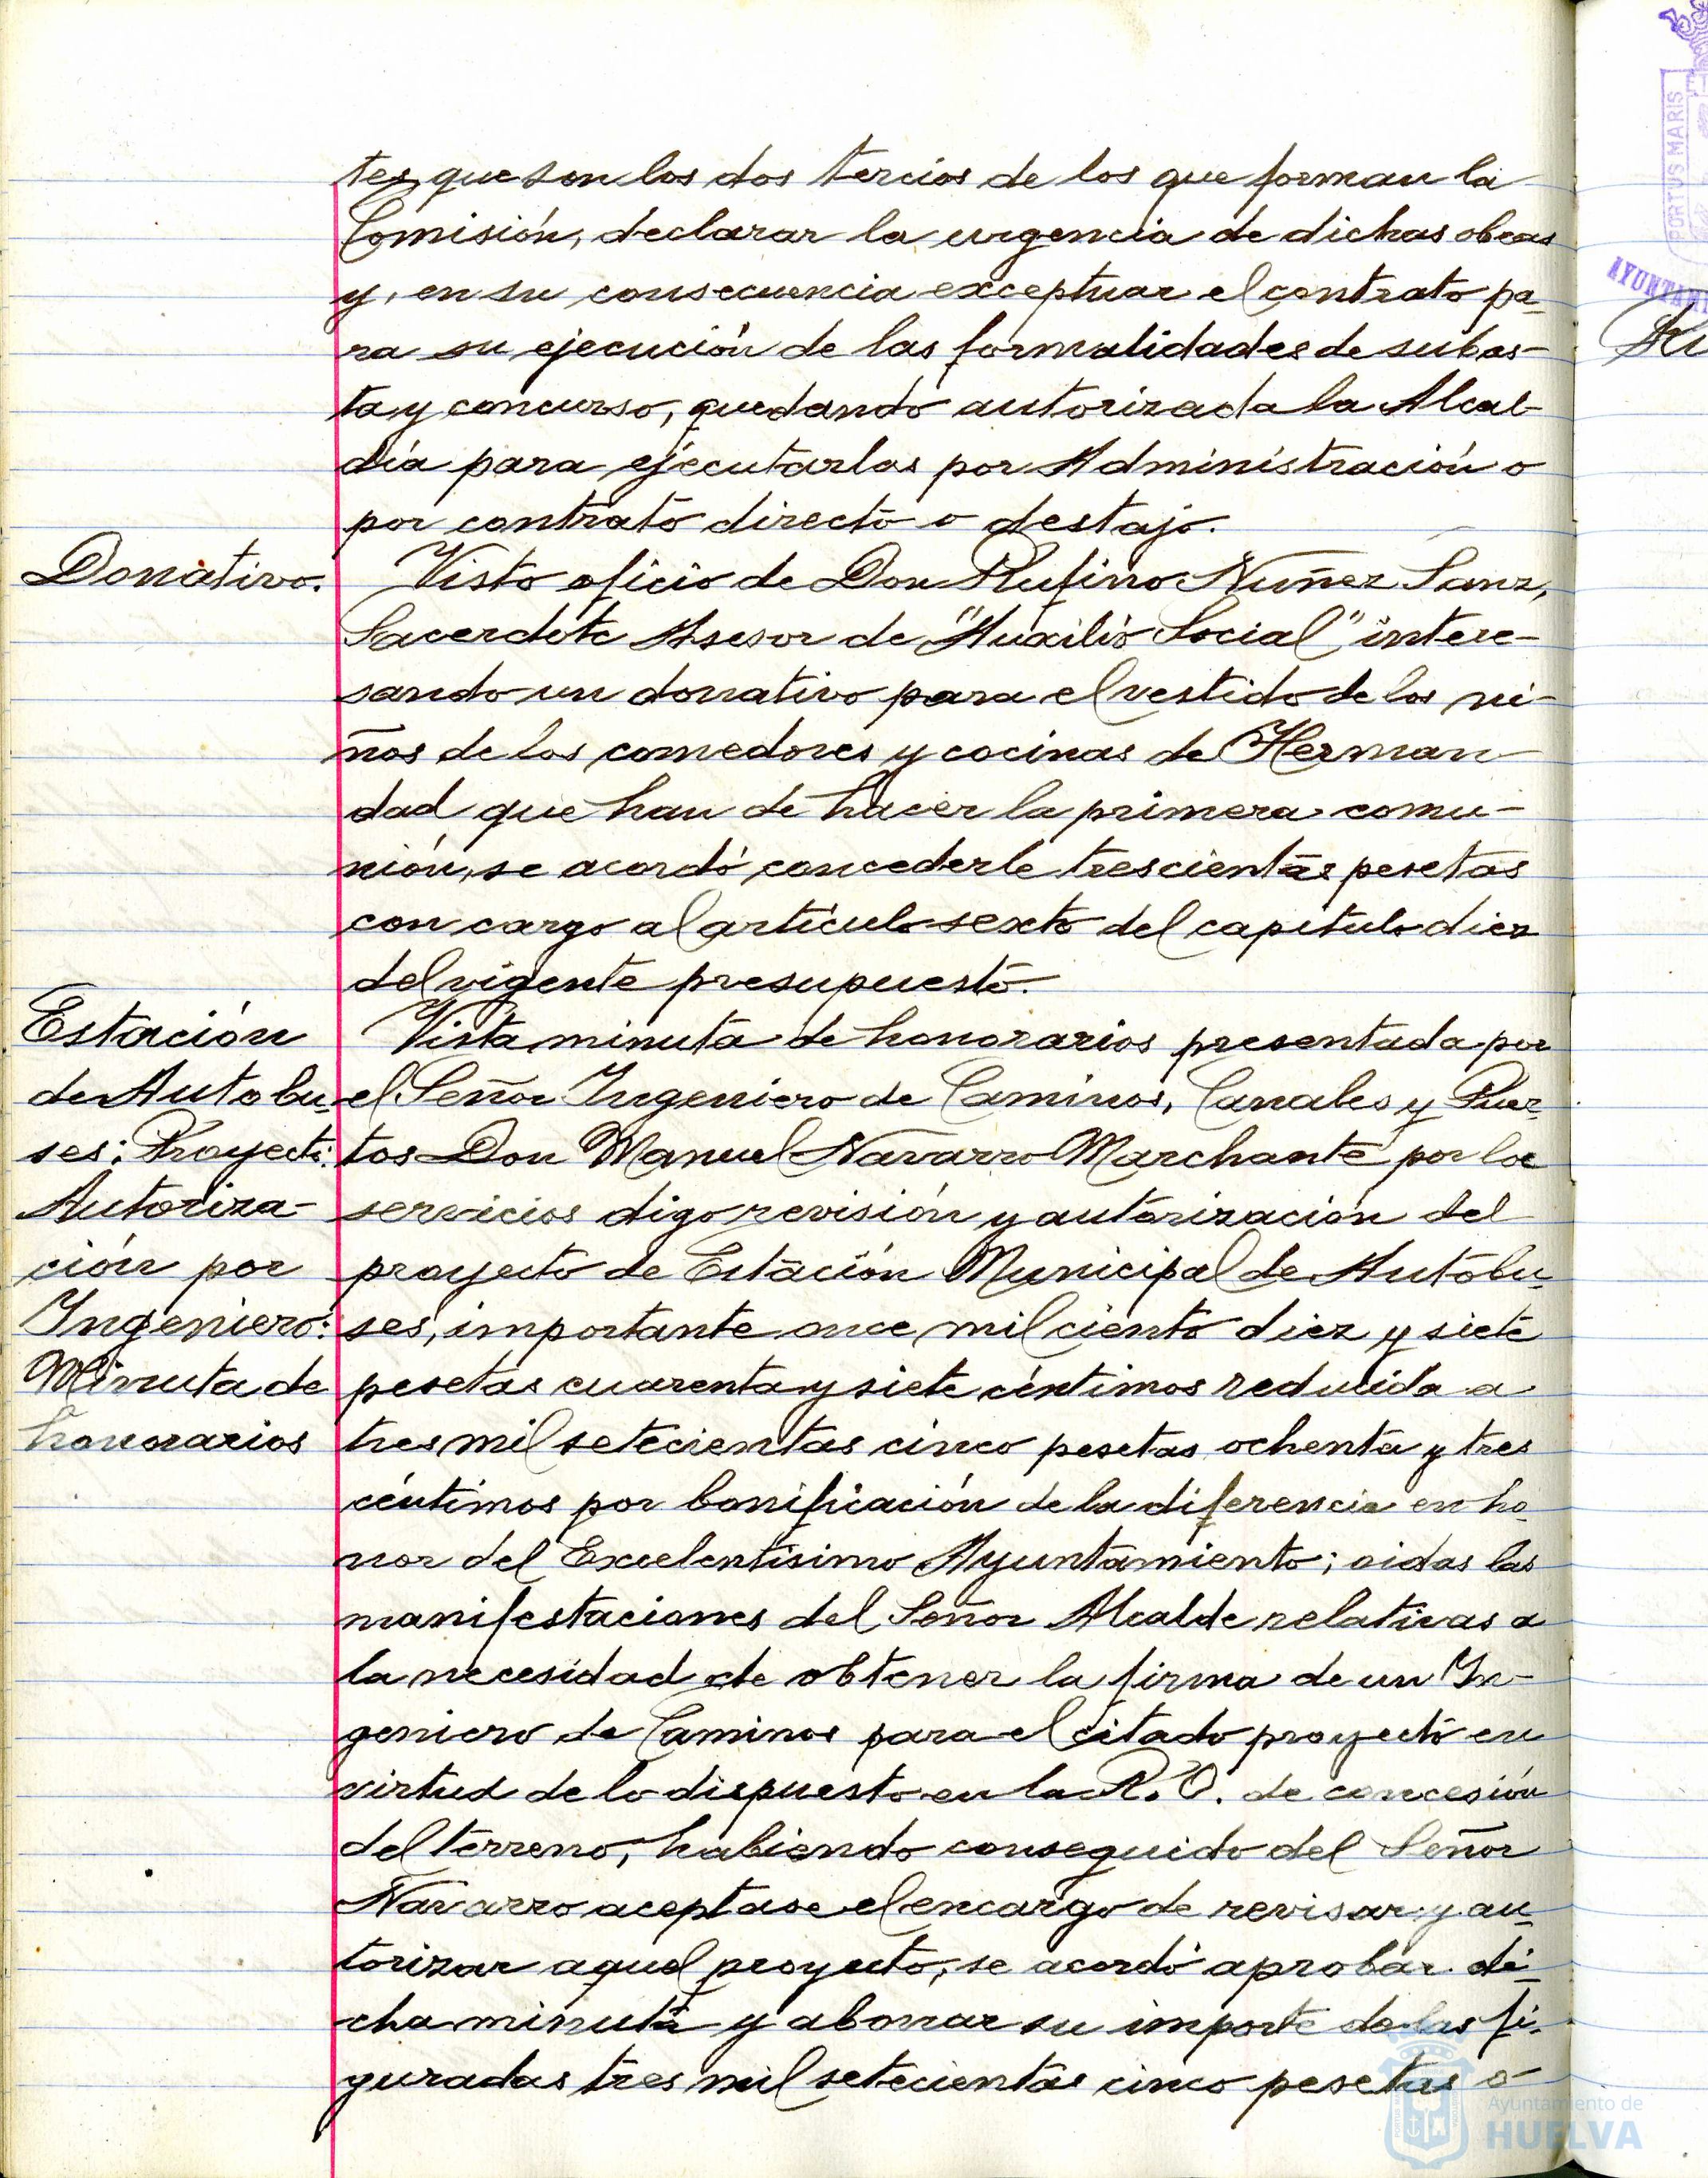 tes que son los dos tercios de los que forman la
Comisión, declarar la urgencia de dichas obras
y, en su consecuencia exceptuar el contrato pa-
ra su ejecución de las formalidades de subas-
ta y concurso, quedando autorizada la Alcal-
día para ejecutarlas por Administración o
por contrato directo o destajo.
Donativo.
Visto oficio de Don Rufino Nuñez Sanz,
Sacerdote Asesor de "Auxilio Social" intere-
sando un donativo para el vestido de los ni-
ños de los comedores y cocinas de Herman
dad que han de hacer la primera comu-
nión, se acordó concederle trescientas pesetas
con cargo al artículo sexto del capítulo diez
del vigente presupuesto.
Estación
de Autobu-
ses: Proyecto:
Autoriza-
ción por
Ingeniero:
Minuta de
honorarios
Vista minuta de honorarios presentada por
el Señor Ingeniero de Caminos, Canales y Puer-
tos Don Manuel Navarro Marchante por los
servicios digo revisión y autorización del
proyecto de Estación Municipal de Autobu-
ses, importante once mil ciento diez y siete
pesetas cuarenta y siete céntimos reducida a
tres mil setecientas cinco pesetas ochenta y tres
céntimos por bonificación de la diferencia en ho-
nor del Excelentísimo Ayuntamiento; oidas las
manifestaciones del Señor Alcalde relativas a
la necesidad de obtener la firma de un In-
geniero de Caminos para el citado proyecto en
virtud de lo dispuesto en la R. O. de concesión
del terreno, habiendo conseguido del Señor
Navarro aceptase el encargo de revisar y au-
torizar aquel proyecto, se acordó aprobar di-
cha minuta y abonar su importe de las fi-
guradas tres mil setecientas cinco pesetas o
PORTUS MARIS
AYUNTAM
Ayuntamiento de
HUELVA